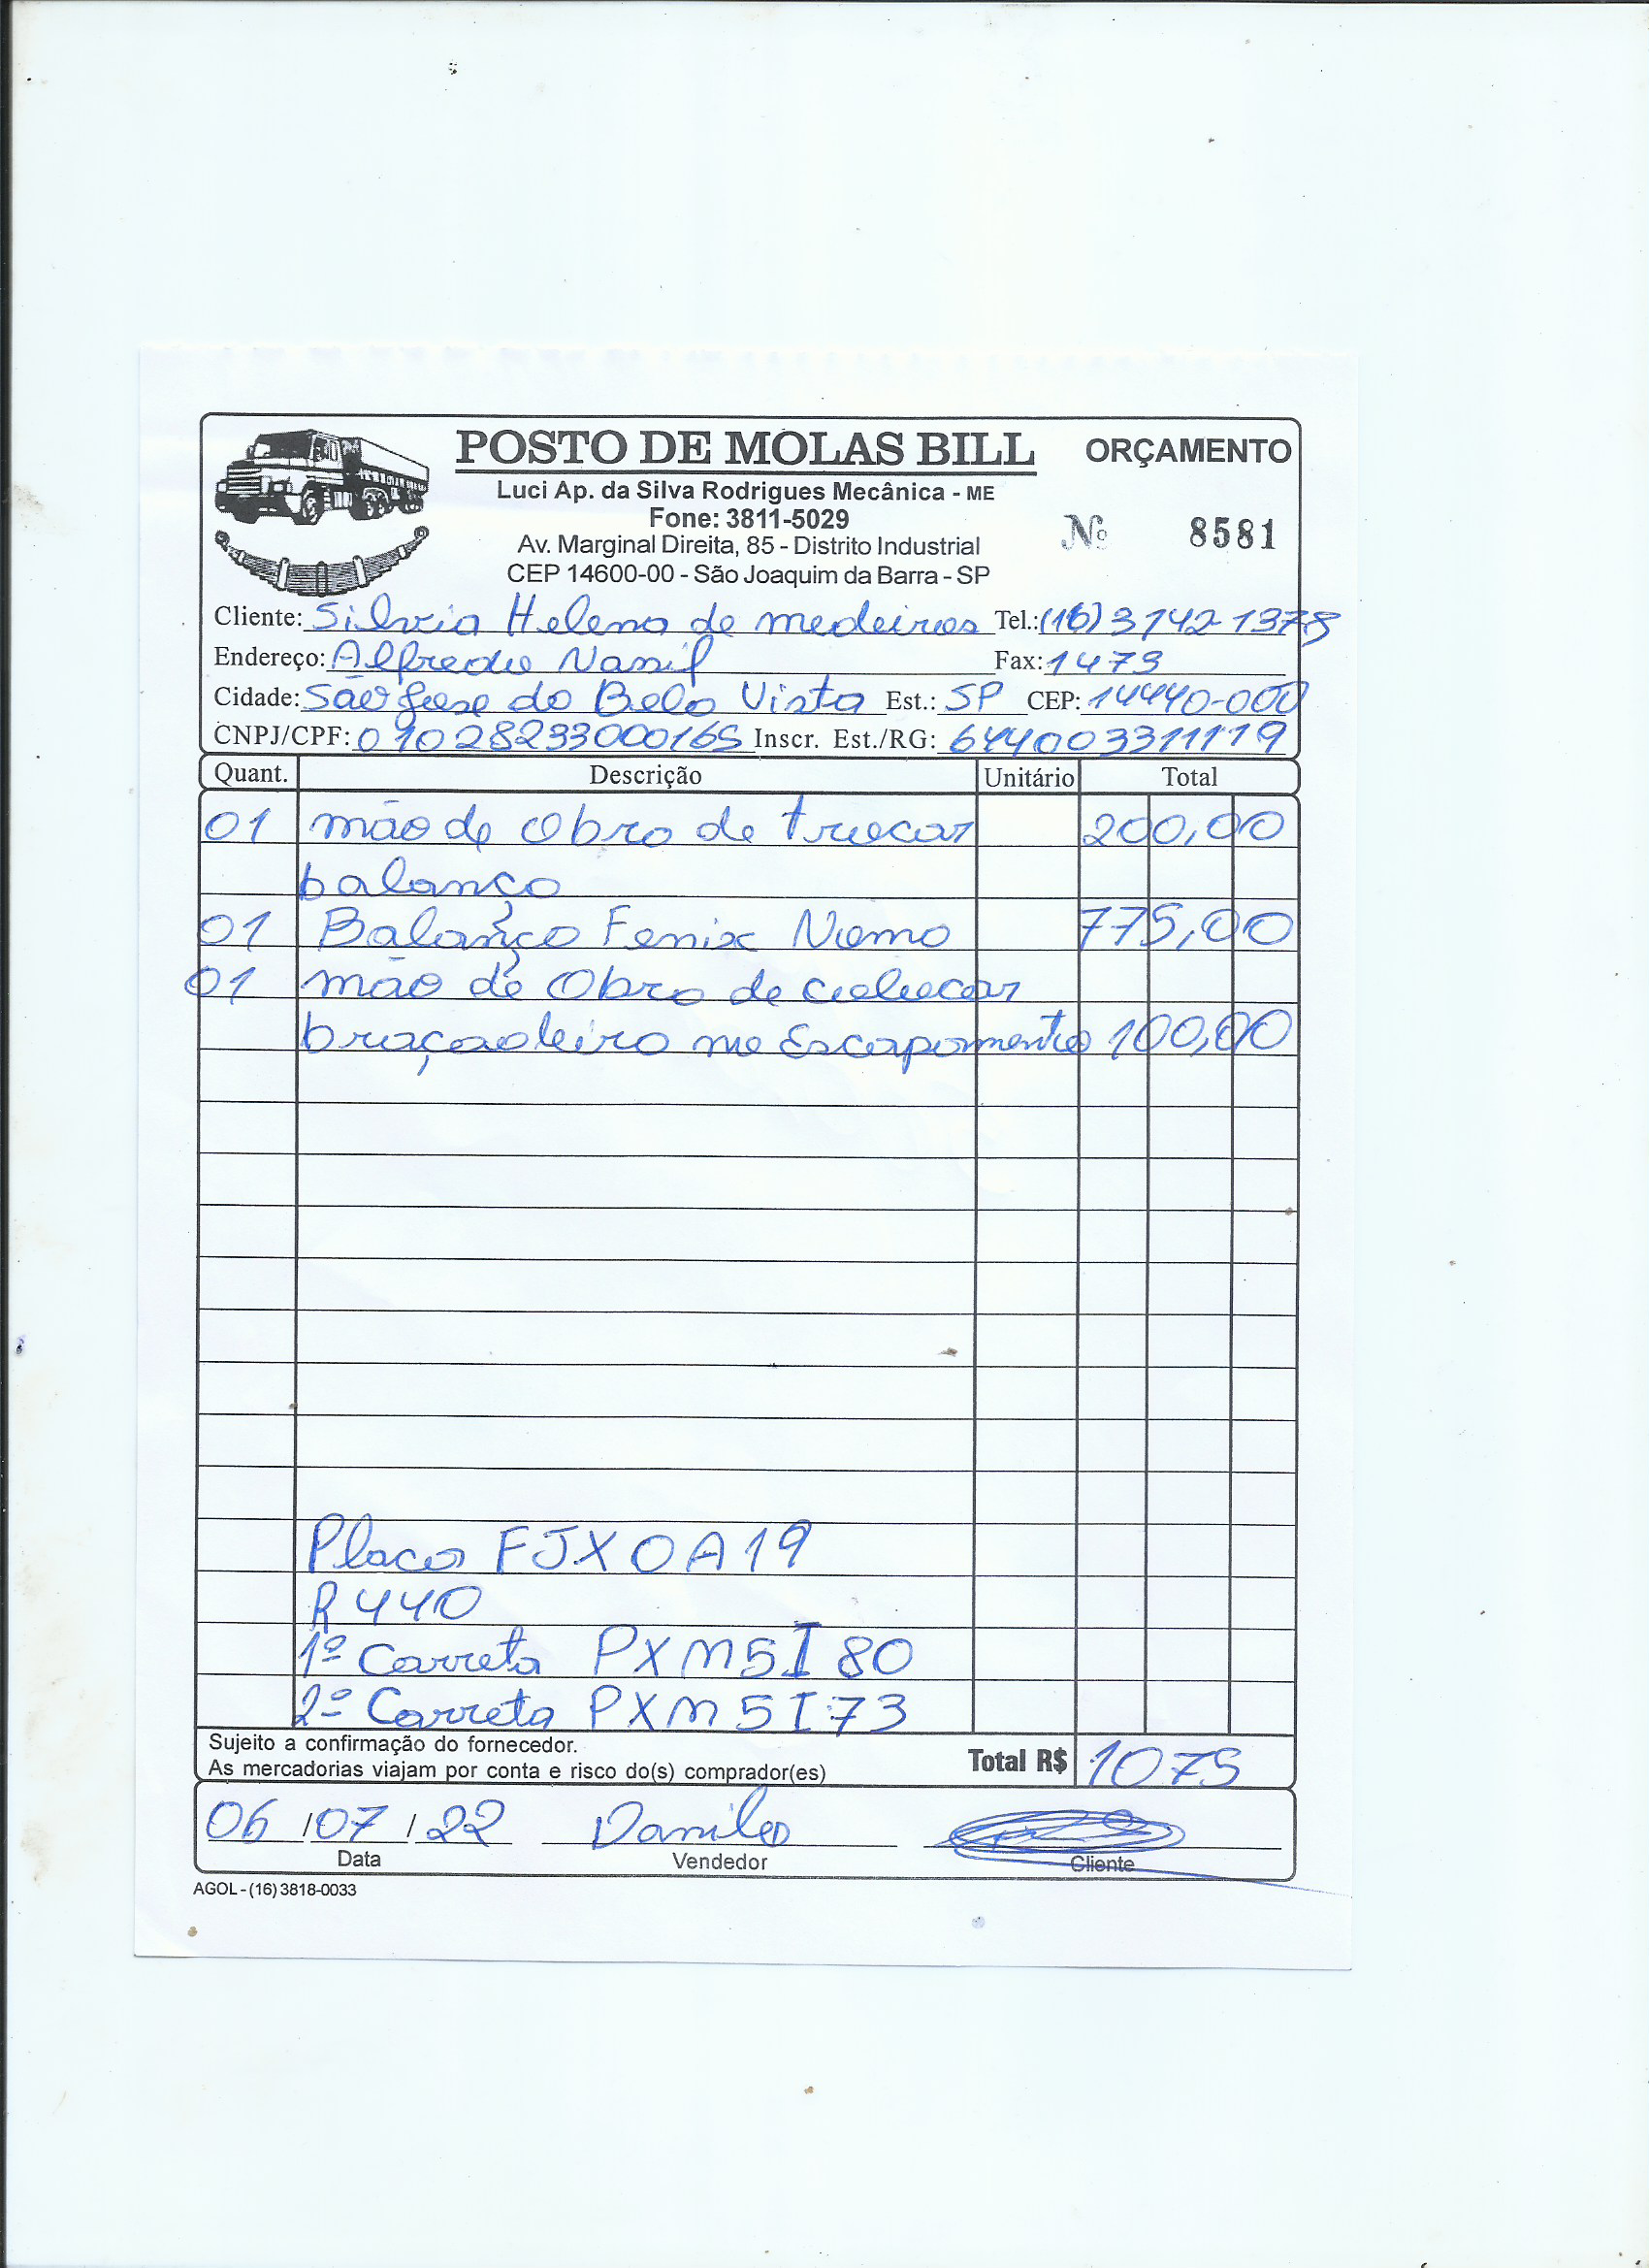 POSTO DE MOLAS BILL ORÇAMENTO
Luci Ap. da Silva Rodrigues Mecânica - ME
Fone: 3811-5029
Nº 8581
Av. Marginal Direita, 85 - Distrito Industrial
CEP 14600-00 - São Joaquim da Barra - SP
Cliente: Silvia Helena de medeiros Tel.: (16) 3142 1378
Endereço: Alfredo Fax: 1473
Cidade: São Jose da Bela Vista Est.: SP CEP: 14440-000
CNPJ/CPF: Inscr. Est./RG: 644003311119
Quant. Descrição Unitário Total
01 mão de Obra de trocar 200,00
balanço
01 Balanço Fenix 775,00
01 mão de Obra de colocar
braçadeira no Escapamento 100,00
Placa FJX0A19
R440
1º Carreta PXM5I80
2º Carreta PXM5I73
Sujeito a confirmação do fornecedor.
As mercadorias viajam por conta e risco do(s) comprador(es) Total R$ 1075
06/07/22 Danilo
Data Vendedor Cliente
AGOL - (16) 3818-0033